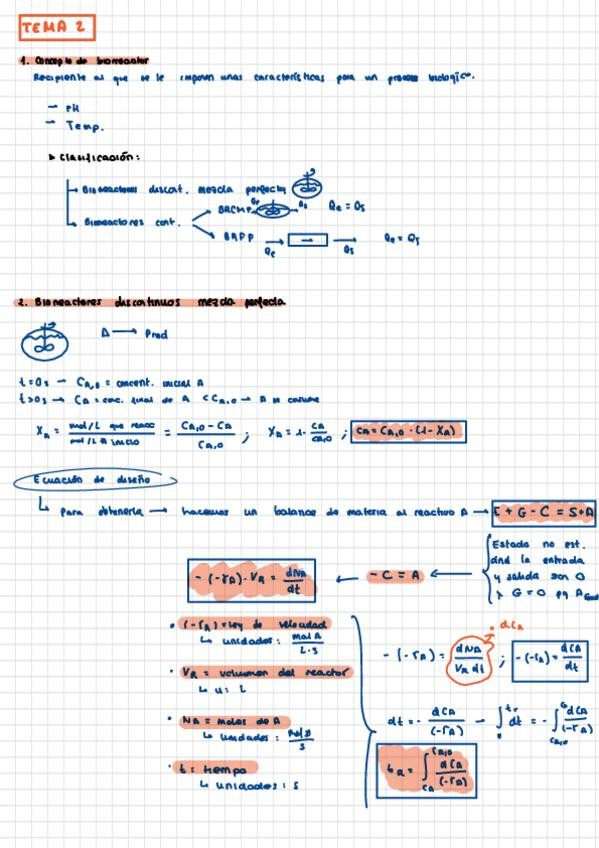 TEMA 2
1. Concepto de biorreactor
Recipiente al que se le imponen unas características para un proceso biológico.
- PH
- Temp.
▸ Clasificación:
→ Biorreactores discont. mezcla perfecta
→ Biorreactores cont.
BRCMP Qe Qs Qe = Qs
BRFP Qe → Qs Qe = Qs
2. Biorreactores discontinuos mezcla perfecta
A → Prod
t=0s → CA,0 = concent. inicial A
t>0s → CA = conc. final de A < CA,0 → A se consume
XA = mol/L que reacc / mol/L A inicio = CA,0 - CA / CA,0 ; XA = 1- CA / CA,0 ; CA = CA,0 · (1 - XA)
Ecuación de diseño
↳ Para obtenerla → hacemos un balance de materia al reactivo A → E + G - C = S + A
Estado no est.
dnd la entrada
y salida son 0
y G = 0 pq
-(-rA) · VR = dNA / dt ← - C = A ←
• (-rA) = ley de velocidad
↳ unidades: mol A / L·s
• VR = volumen del reactor
↳ u: L
• NA = moles de A
↳ unidades:
• t: tiempo
↳ unidades: s
dCA
-(-rA) = dNA / VR dt ; -(-rA) = dCA / dt
dt = - dCA / (-rA) → ∫ dt = - ∫ dCA / (-rA)
tR = ∫ CA CA,0 dCA / (-rA)